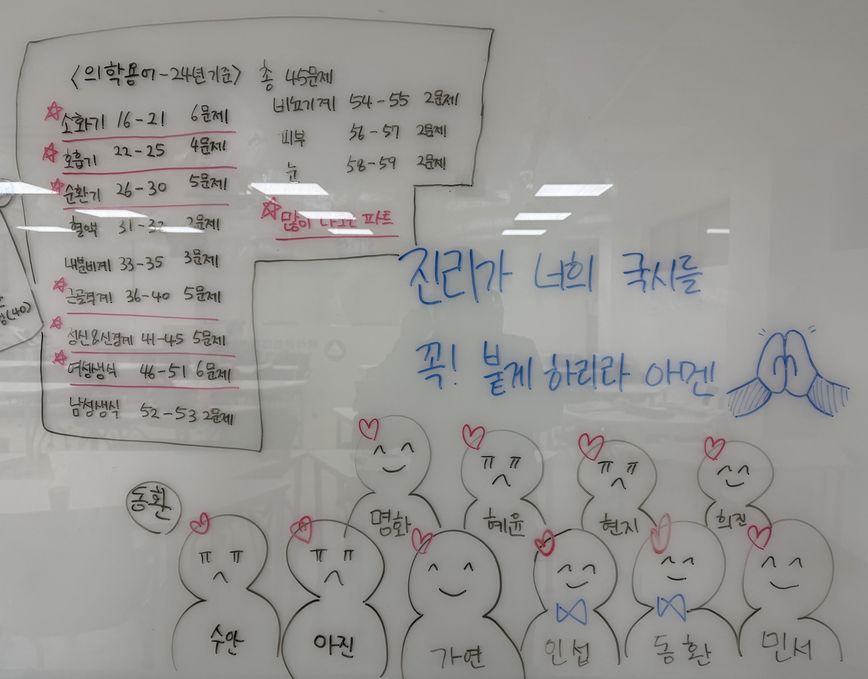 <의학용어-24년기준> 총 45문제
소화기 16-21 6문제
호흡기 22-25 4문제
순환기 26-30 5문제
혈액 31-32 2문제
내분비계 33-35 3문제
근골격계 36-40 5문제
정신&신경계 41-45 5문제
여성생식 46-51 6문제
남성생식 52-53 2문제
비뇨기계 54-55 2문제
피부 56-57 2문제
눈 58-59 2문제
많이 나오는 파트
(40)
진리가 너희 국시를
꼭! 붙게 하리라 아멘
동환
명화 혜윤 현지 희진
수안 아진 가연 인섭 동환 민서